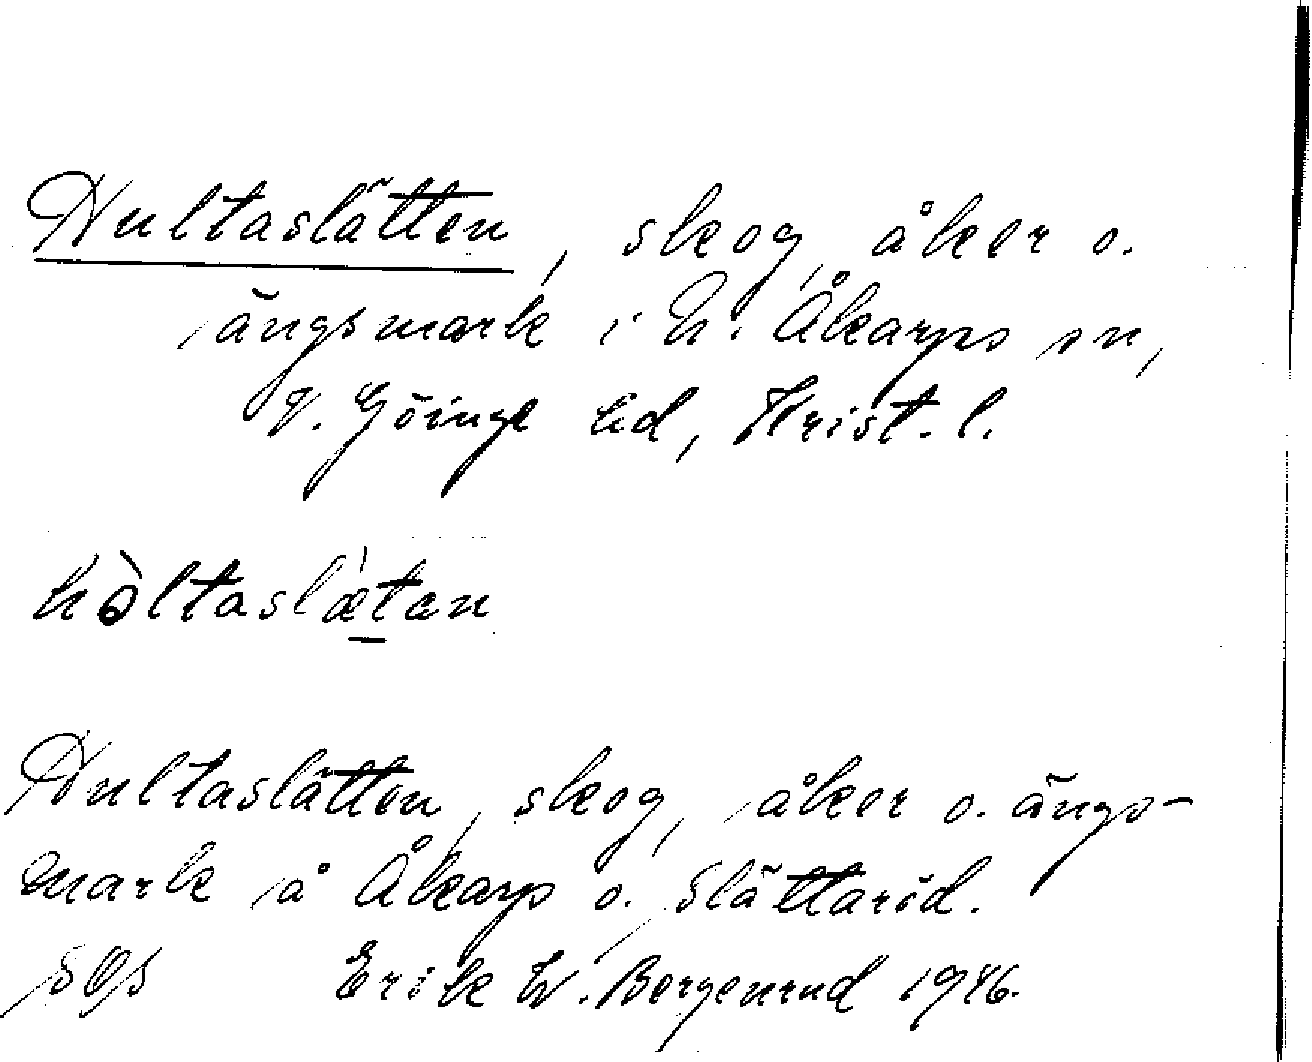 Hultaslätten, skog, åker o.
ängsmark i N. Åkarps sn,
V. Göinge hd, Krist. l.
hòltaslæ̀tan
Hultaslätten, skog, åker o. ängs-
mark å Åkarp o. Slättaröd.
Erik W. Bergenrud 1946.